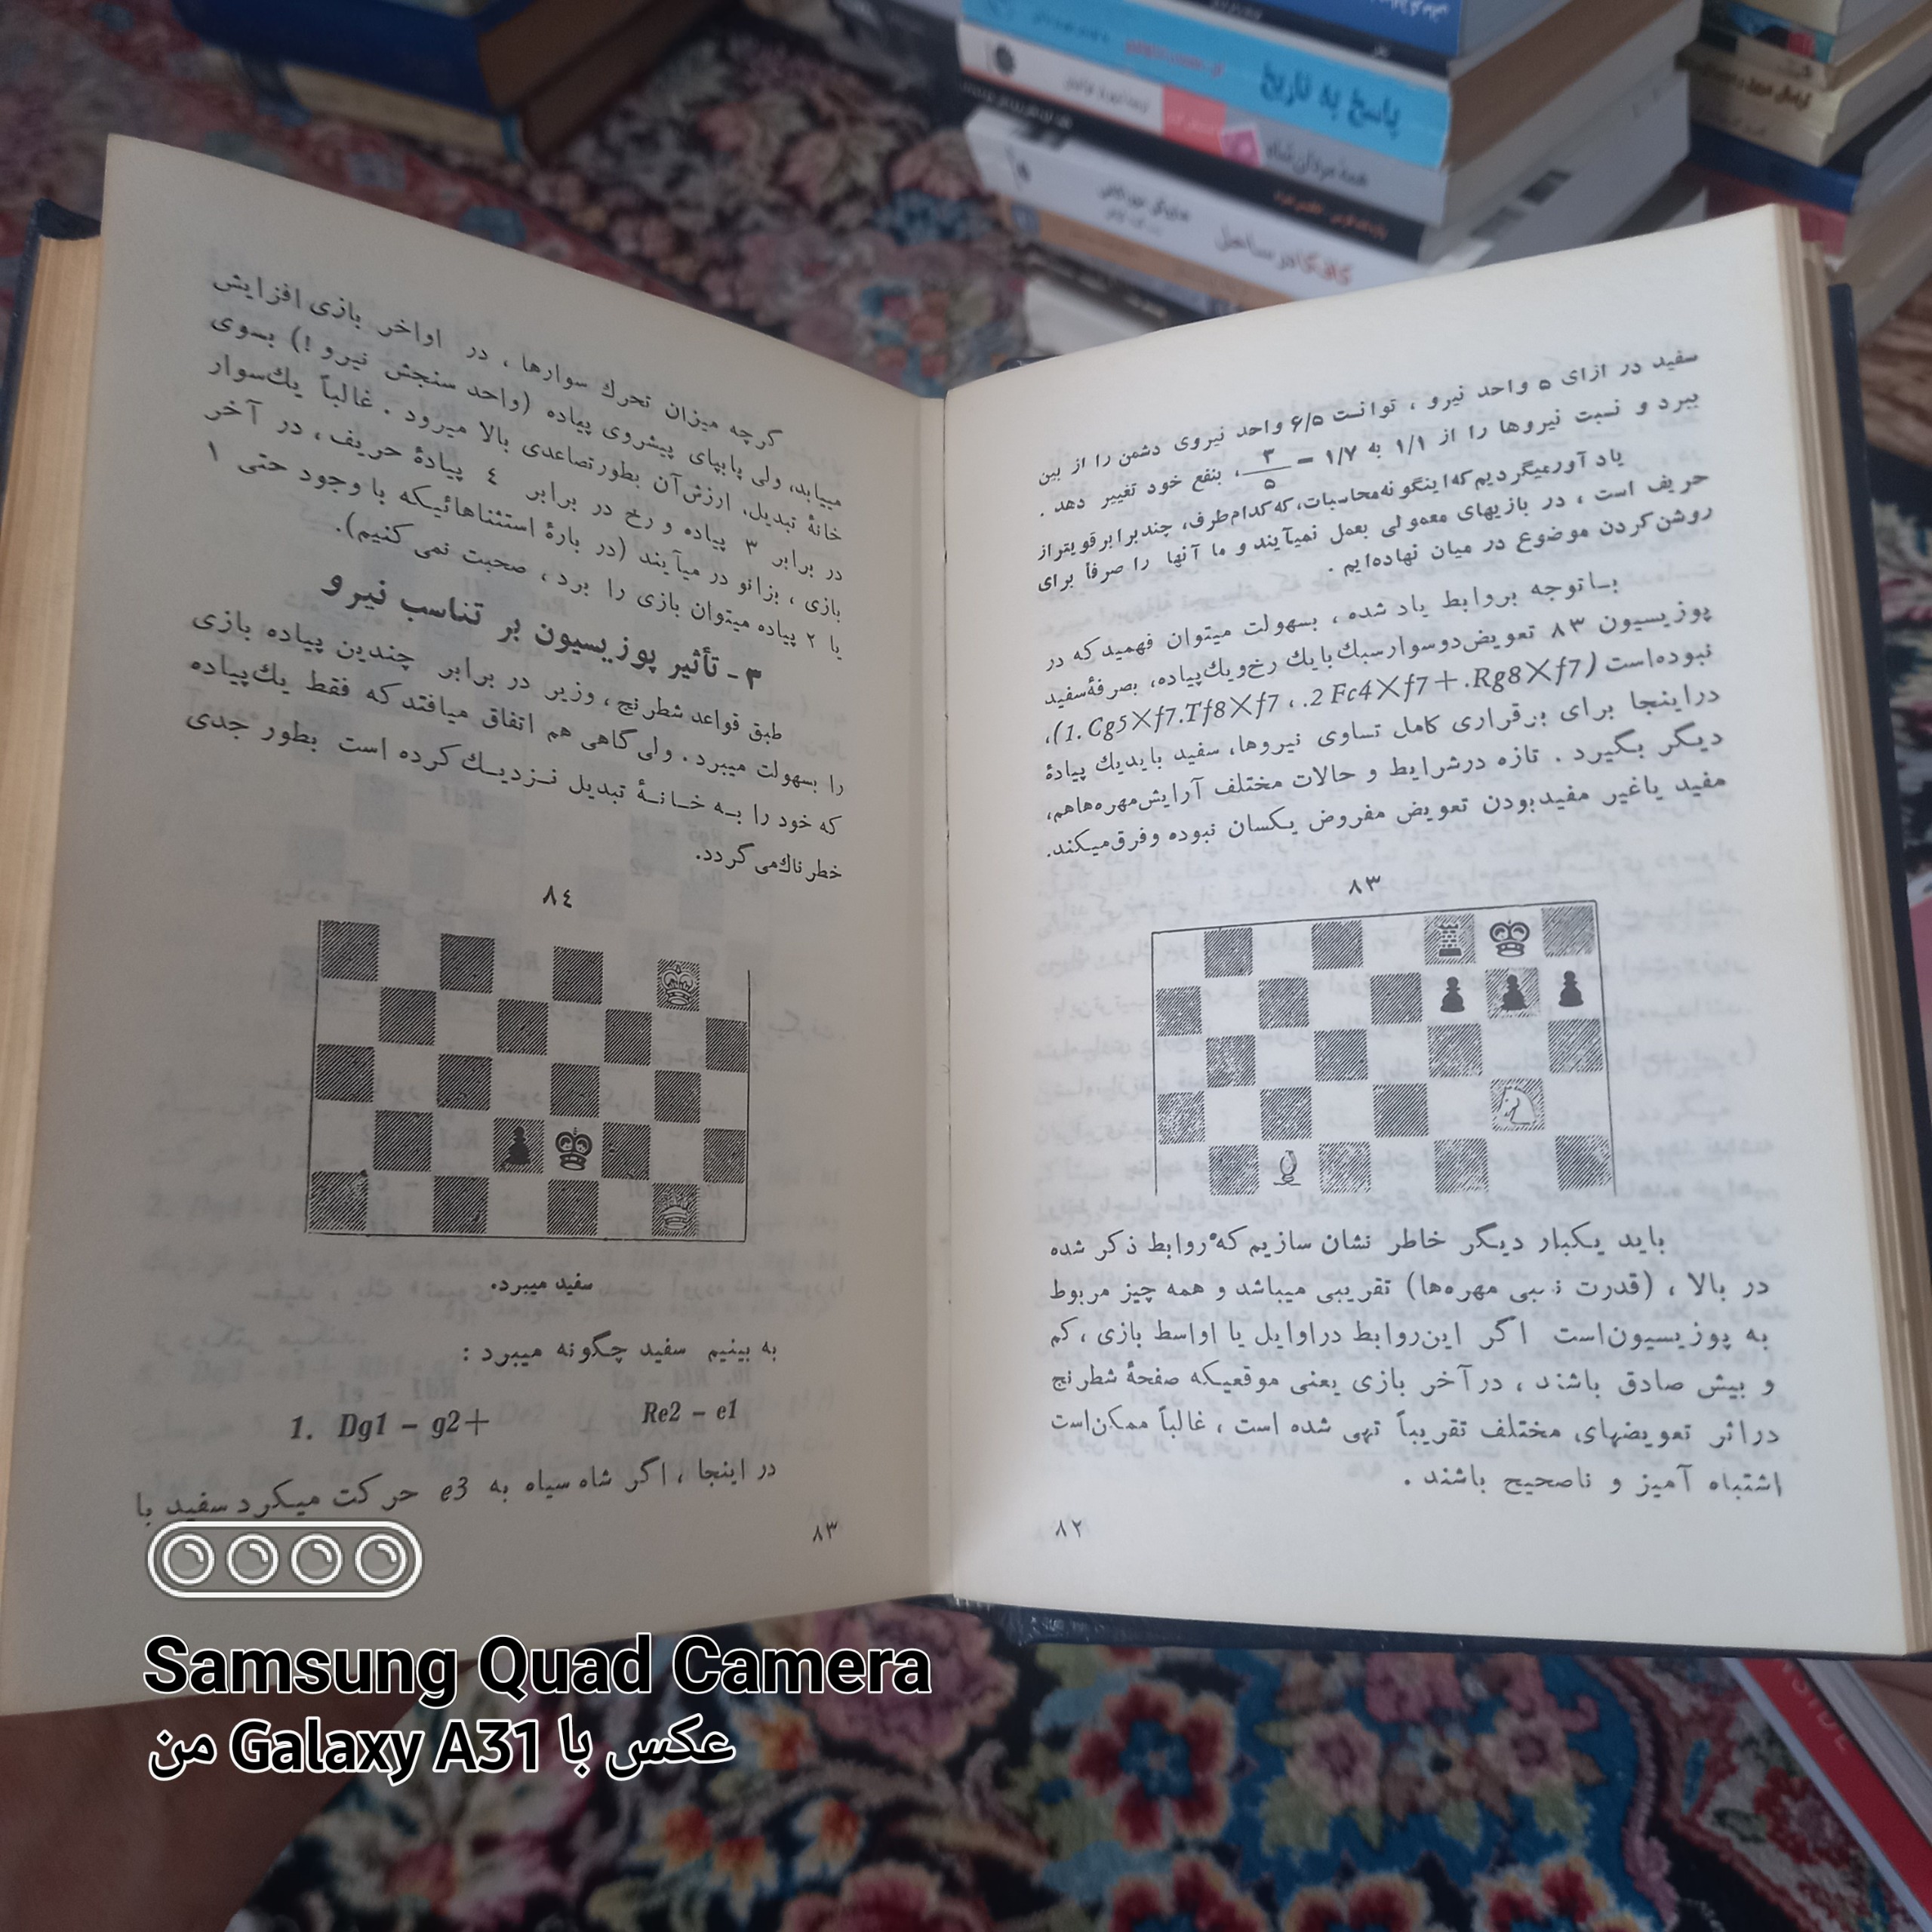 سفید در ازای ۵ واحد نیرو ، توانست ۶/۵ واحد نیروی دشمن را از بین
ببرد و نسبت نیروها را از ۱/۱ به ۱/۷ = ۳/۵ ، بنفع خود تغییر دهد .
یاد آورمیگردیم که اینگونه محاسبات، که کدام طرف، چند برابر قویتر از
حریف است ، در بازیهای معمولی بعمل نمیآیند و ما آنها را صرفاً برای
روشن کردن موضوع در میان نهاده‌ایم .
باتوجه بروابط یاد شده ، بسهولت میتوان فهمید که در
پوزیسیون ۸۳ تعویض دوسوار سبك با یك رخ و یك پیاده، بصرفهٔ سفید
نبوده است (1. Cg5×f7.Tf8×f7 ، .2 Fc4×f7+ .Rg8×f7)،
دراینجا برای برقراری کامل تساوی نیروها، سفید باید یك پیادهٔ
دیگر بگیرد . تازه درشرایط و حالات مختلف آرایش مهره‌ها هم،
مفید یاغیر مفید بودن تعویض مفروض یکسان نبوده و فرق میکند.
۸۳
باید یکبار دیگر خاطر نشان سازیم که روابط ذکر شده
در بالا ، (قدرت نسبی مهره‌ها) تقریبی میباشد و همه چیز مربوط
به پوزیسیون است اگر این روابط در اوایل یا اواسط بازی ، کم
و بیش صادق باشند ، در آخر بازی یعنی موقعیکه صفحهٔ شطرنج
در اثر تعویضهای مختلف تقریباً تهی شده است ، غالباً ممکن است
اشتباه آمیز و ناصحیح باشند .
۸۲
گرچه میزان تحرك سوارها ، در اواخر بازی افزایش
مییابد، ولی پابپای پیشروی پیاده (واحد سنجش نیرو !) بسوی
خانهٔ تبدیل، ارزش آن بطور تصاعدی بالا میرود . غالباً یك سوار
در برابر ۳ پیاده و رخ در برابر ٤ پیادهٔ حریف ، در آخر
بازی ، بزانو در میآیند (در بارهٔ استثناهائیکه با وجود حتی ۱
یا ۲ پیاده میتوان بازی را برد ، صحبت نمی کنیم).
۳ - تأثیر پوزیسیون بر تناسب نیرو
طبق قواعد شطرنج ، وزیر در برابر چندین پیاده بازی
را بسهولت میبرد . ولی گاهی هم اتفاق میافتد که فقط یك پیاده
که خود را به خانهٔ تبدیل نزدیك کرده است بطور جدی
خطرناك می گردد.
۸٤
سفید میبرد.
به بینیم سفید چگونه میبرد :
1. Dg1 – g2+ Re2 – e1
در اینجا ، اگر شاه سیاه به e3 حرکت میکرد سفید با
۸۳
پاسخ به تاریخ
همهٔ مردان شاه
کافکا در ساحل
Samsung Quad Camera
عکس با Galaxy A31 من